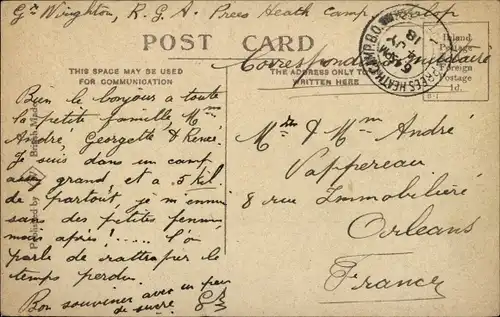 Gr Wrighton, R.G.A. Prees Heath Camp, Salop
POST CARD
Correspondance Militaire
THIS SPACE MAY BE USED
FOR COMMUNICATION
THE ADDRESS ONLY TO
WRITTEN HERE
Inland
Postage
Foreign
Postage
1d.
PREES HEATH CAMP B.O.
6 PM
JY
18
Bien le bonjour a toute
la petite famille, Mm
André, Georgette & René.
Je suis dans un camp
assez grand, et a 5 kil
de partout, je m'ennui
sans des petites femmes,
mais après! ..... l'on
parle de rattraper le
temps perdu.
Bon souvenir avec un peu
de sucre.
Mr & Mm André
Vappereau
8 rue Immobiliéré
Orleans
France
Published by
British Made